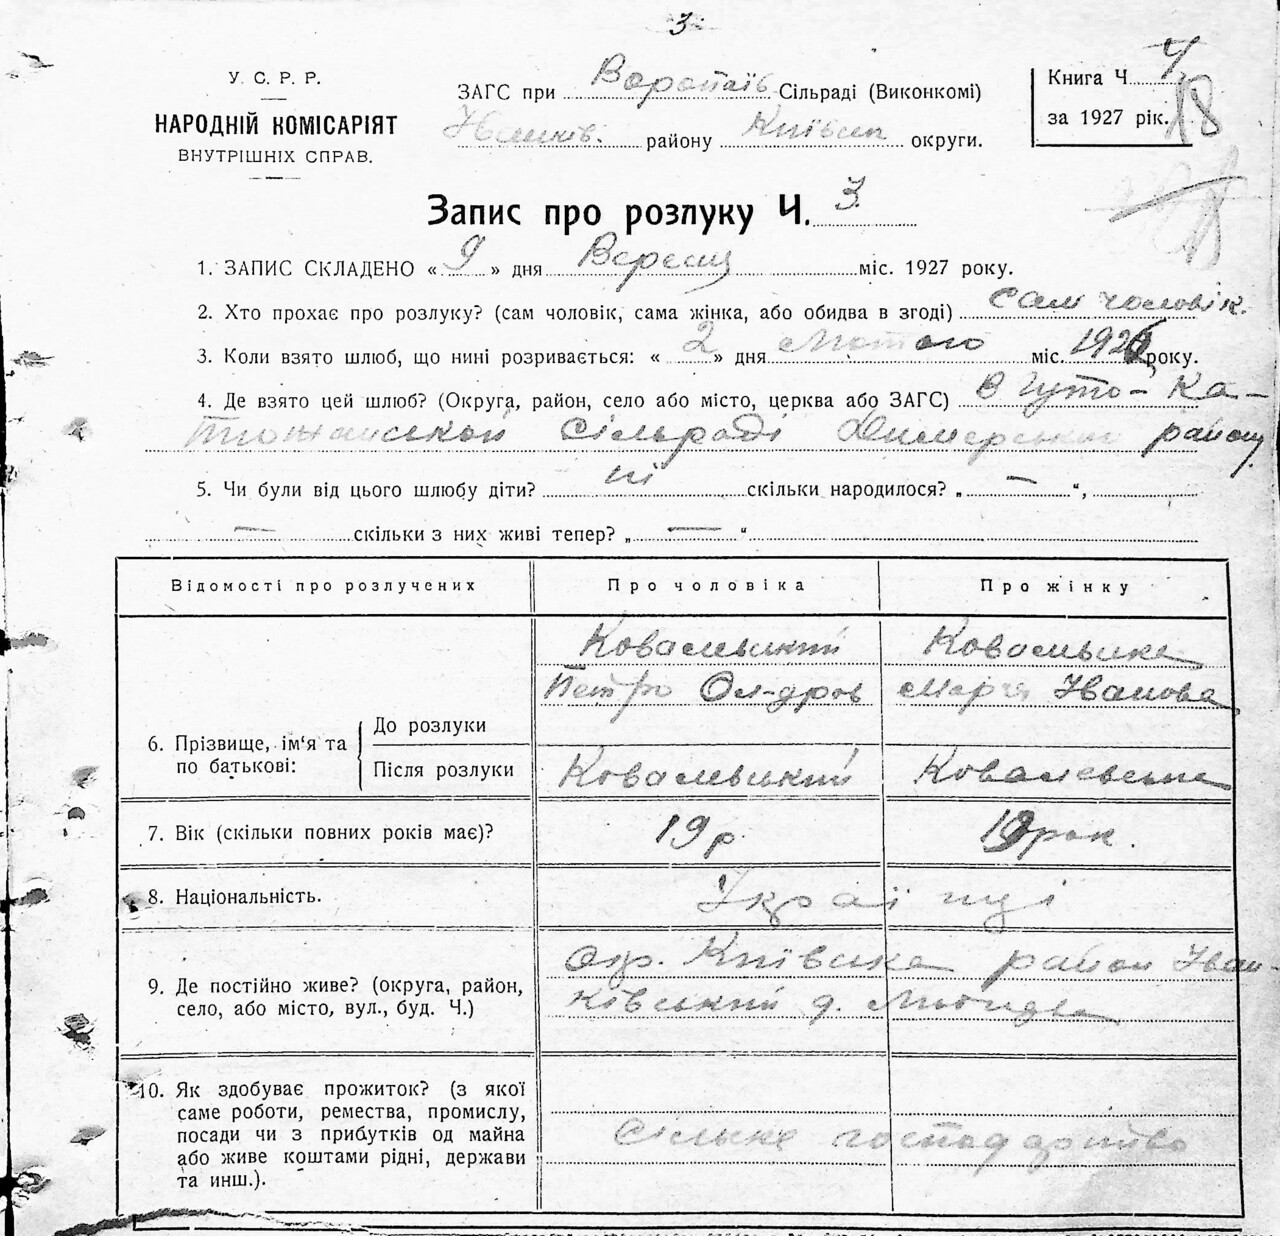 3
У. С. Р. Р.
НАРОДНІЙ КОМІСАРІЯТ
ВНУТРІШНІХ СПРАВ.
ЗАГС при Воропаїв Сільраді (Виконкомі)
району Київськ округи.
Книга Ч. 4
за 1927 рік. 18
Запис про розлуку Ч. 3
1. ЗАПИС СКЛАДЕНО « 9 » дня Вересц міс. 1927 року.
2. Хто прохає про розлуку? (сам чоловік, сама жінка, або обидва в згоді) сам чоловік.
3. Коли взято шлюб, що нині розривається: « 2 » дня Лютого міс. 1926 року.
4. Де взято цей шлюб? (Округа, район, село або місто, церква або ЗАГС) в Гуто-Ка-
тюжанській сільраді Димерського району
5. Чи були від цього шлюбу діти? ні скільки народилося? „ — “,
— скільки з них живі тепер? „ — “
Відомості про розлучених
Про чоловіка
Про жінку
6. Прізвище, ім‘я та по батькові:
До розлуки
Після розлуки
Ковалевький
Петро Ол-дров
Ковалевький
Ковальська
Марія Іванова
Ковалевська
7. Вік (скільки повних років має)?
19 р
19 рок.
8. Національність.
Українці
9. Де постійно живе? (округа, район,
село, або місто, вул., буд. Ч.)
окр. Київська район Іван-
ківський д.
10. Як здобуває прожиток? (з якої
саме роботи, ремества, промислу,
посади чи з прибутків од майна
або живе коштами рідні, держави
та инш.).
Сільське господарство